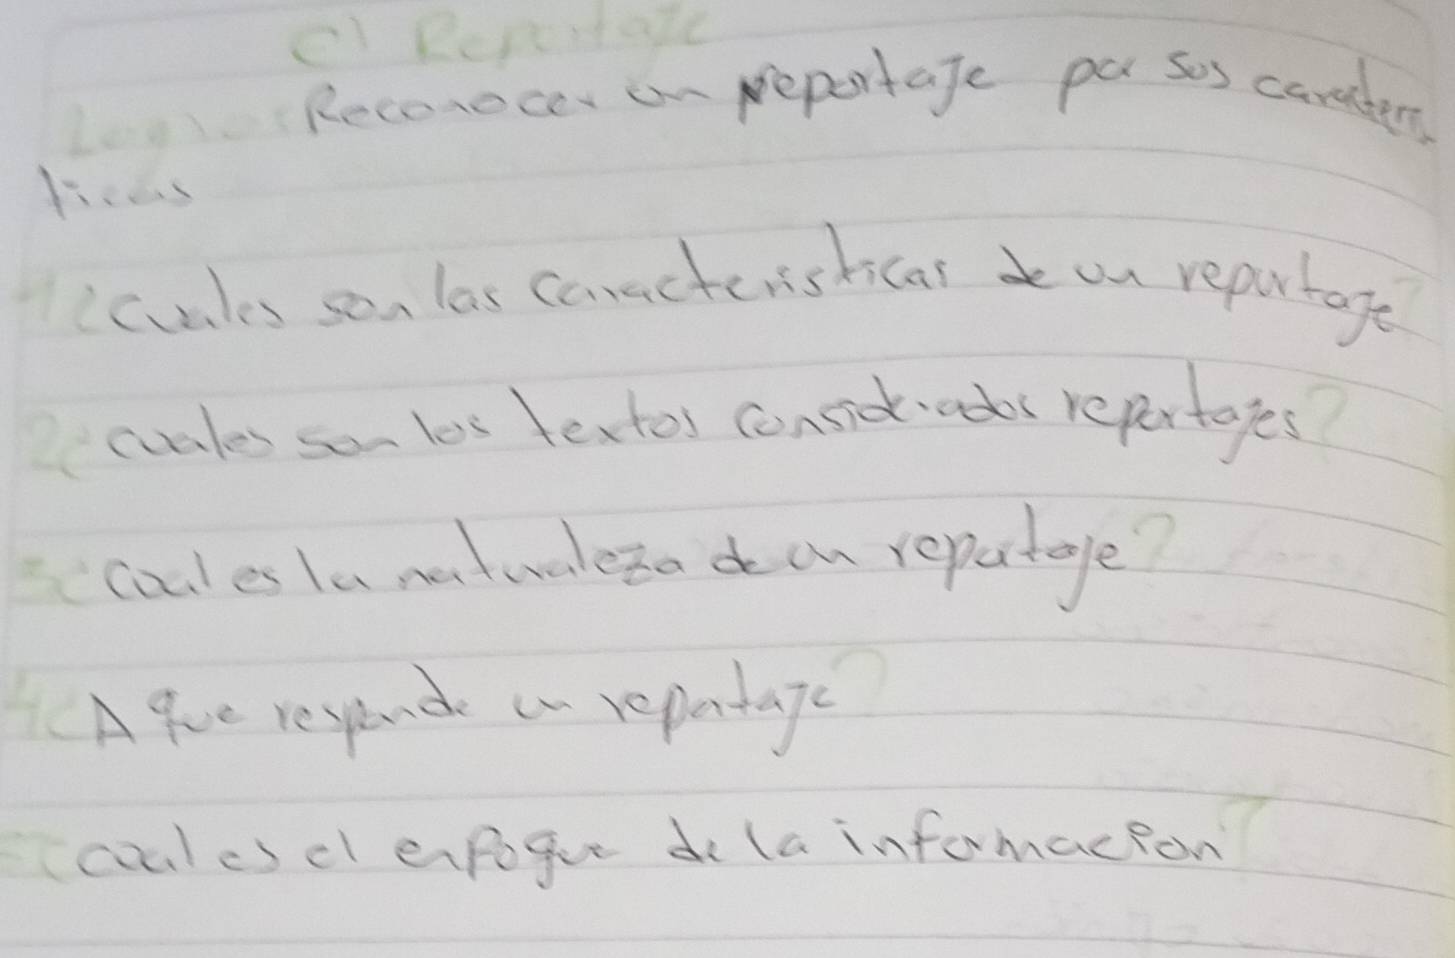 c) Reportaje
Logro: Reconocer un reportaje por sus caracterís
ticas
1¿Cuales son las caracteristicas de un reportaje?
2¿cuales son los textos considerados reportajes?
3¿cual es la naturaleza de un reportaje?
4¿A que responde un reportaje?
5¿cual es el enfoque de la informacion?